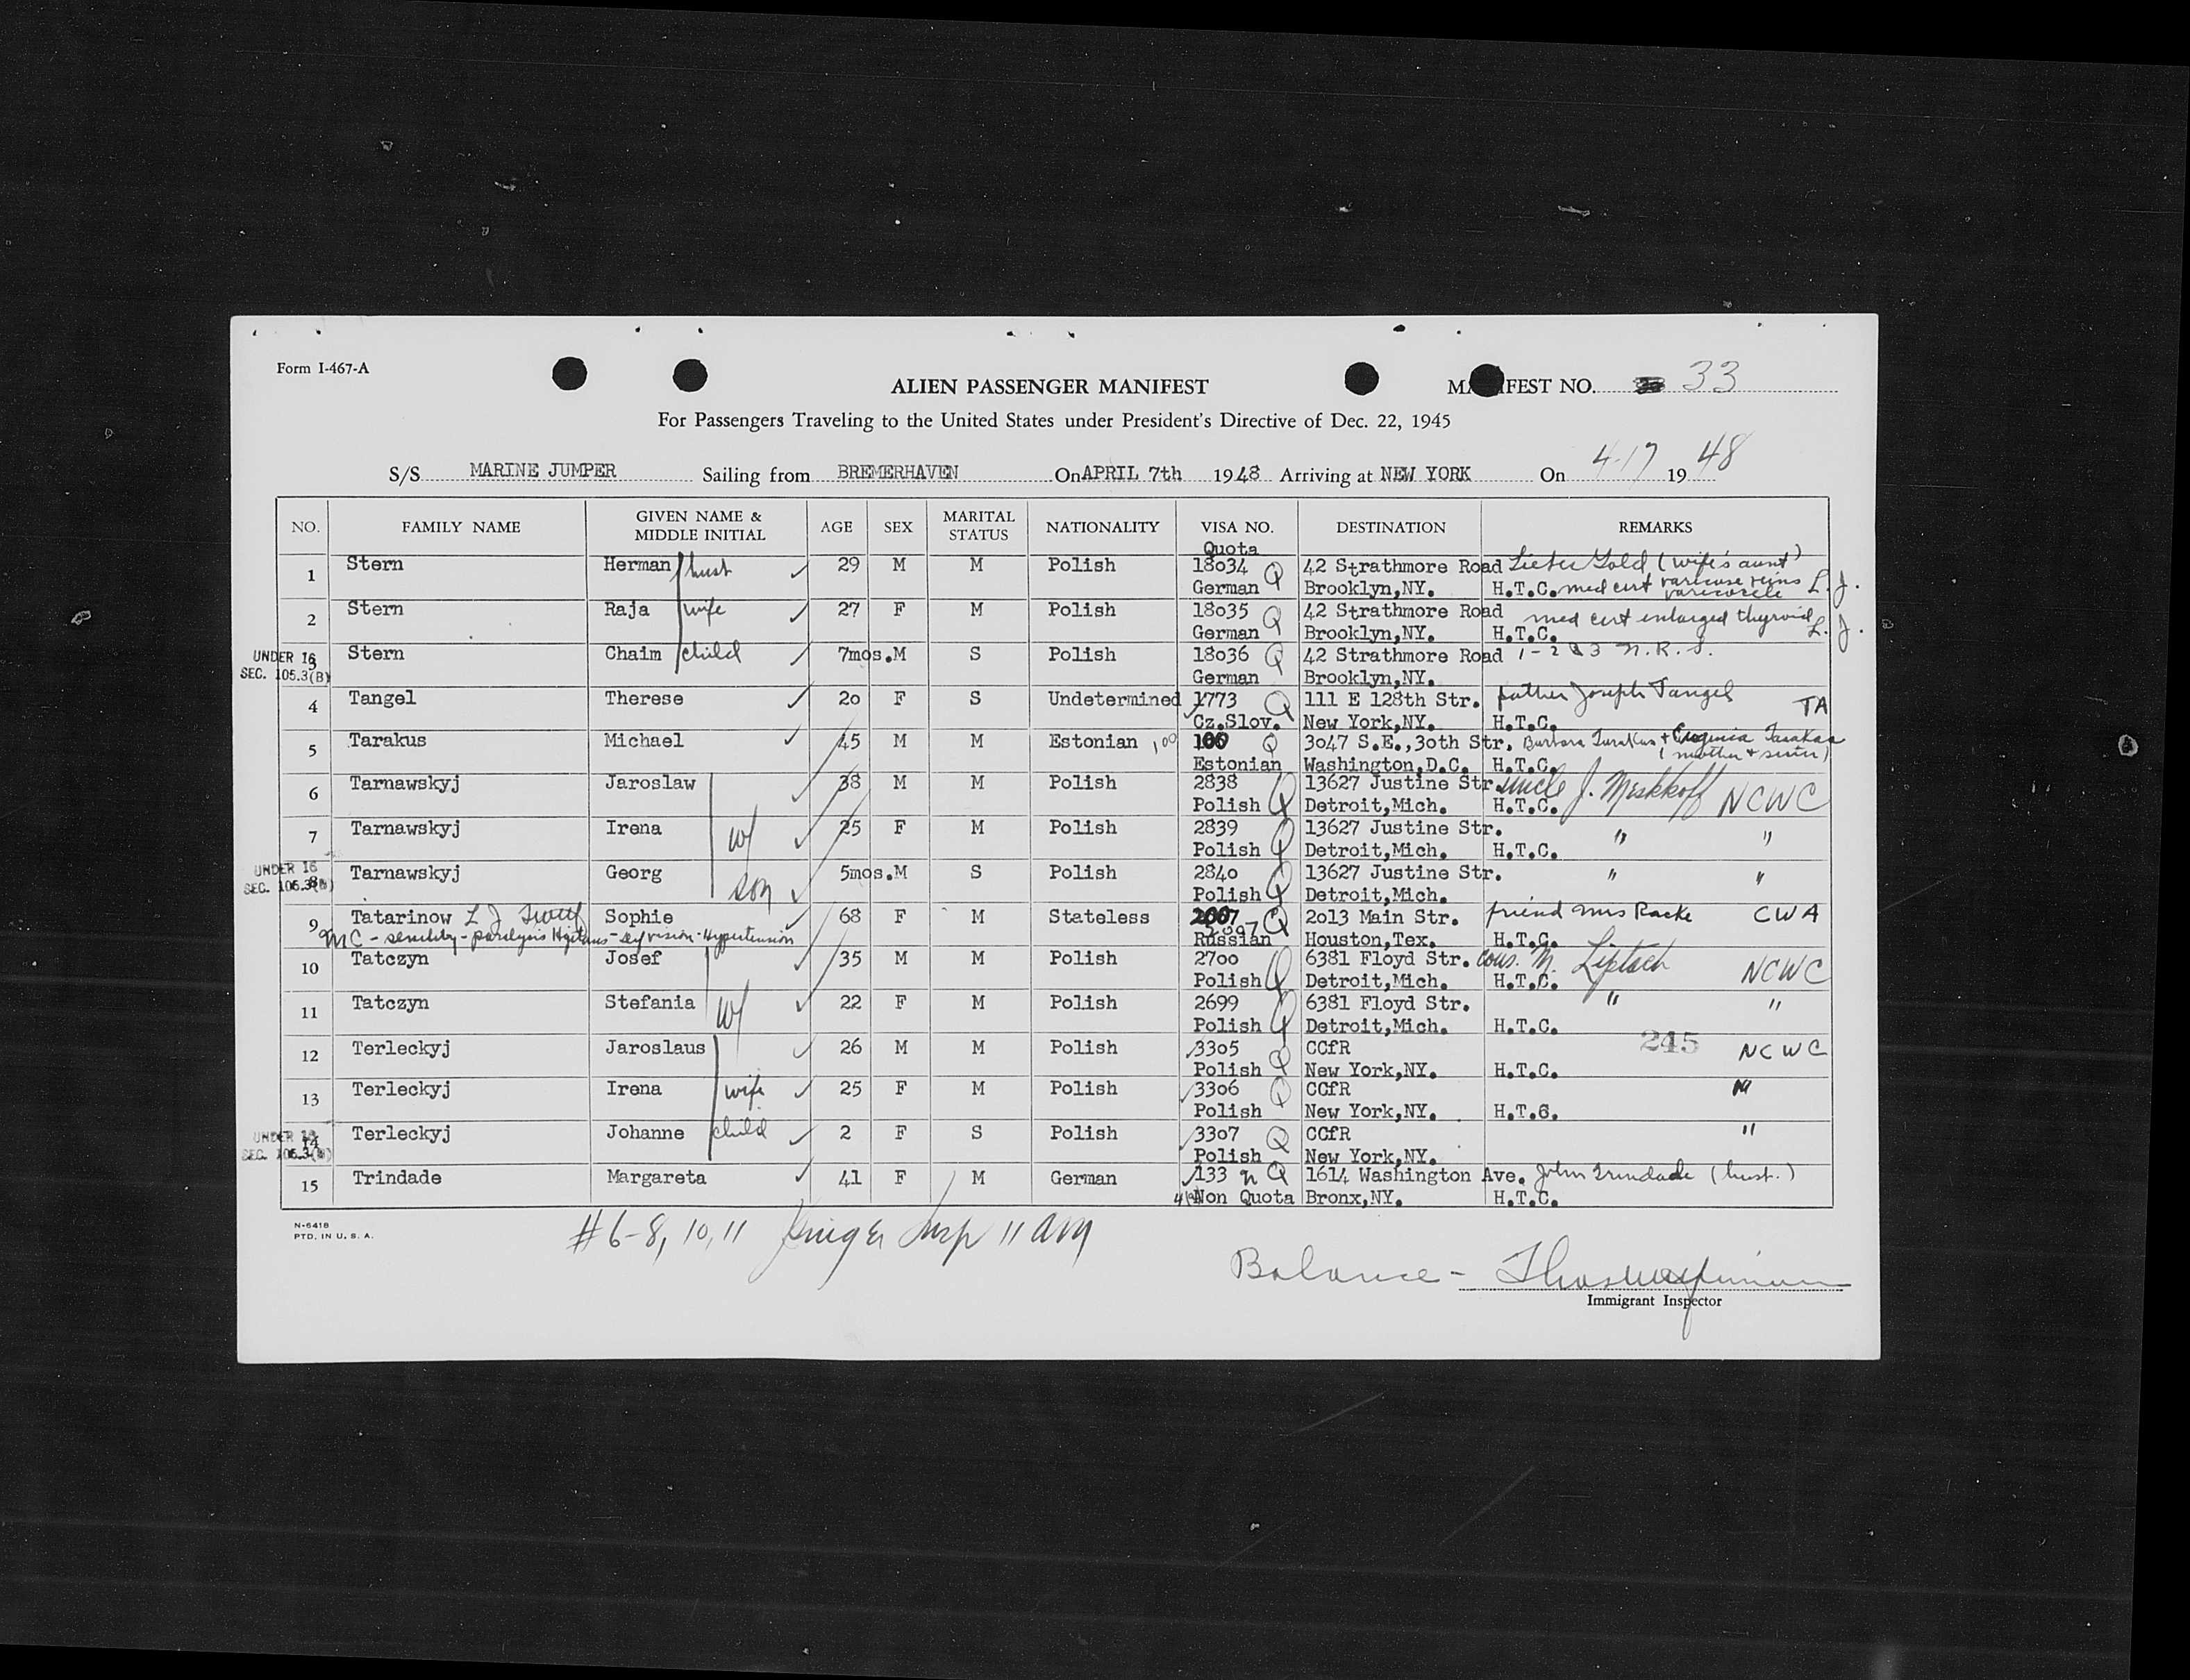 Form I-467-A
ALIEN PASSENGER MANIFEST
MANIFEST NO. 33
For Passengers Traveling to the United States under President's Directive of Dec. 22, 1945
S/S MARINE JUMPER Sailing from BREMERHAVEN On APRIL 7th 1948 Arriving at NEW YORK On 4-17 1948
NO. FAMILY NAME GIVEN NAME & MIDDLE INITIAL AGE SEX MARITAL STATUS NATIONALITY VISA NO. DESTINATION REMARKS
Quota
1 Stern Herman hust 29 M M Polish 18034 Q 42 Strathmore Road Gold (wife's aunt)
German Brooklyn,NY. H.T.C. med cert varicose veins varicocele L.J.
2 Stern Raja wife 27 F M Polish 18035 Q 42 Strathmore Road med cert enlarged thyroid L.J.
German Brooklyn,NY. H.T.C.
UNDER 16 SEC. 105.3(B)
3 Stern Chaim child 7mos. M S Polish 18036 Q 42 Strathmore Road 1-2 & 3 N.R.S.
German Brooklyn,NY.
4 Tangel Therese 20 F S Undetermined 1773 Q 111 E 128th Str. father Joseph Tangel TA
Cz.Slov. New York,NY. H.T.C.
5 Tarakus Michael 45 M M Estonian 100 100 Q 3047 S.E.,30th Str. Barbara Tarakus + Tarakus
Estonian Washington,D.C. H.T.C. (mother + sister)
6 Tarnawskyj Jaroslaw 38 M M Polish 2838 Q 13627 Justine Str. uncle J. Meskkoff NCWC
Polish Detroit,Mich. H.T.C.
7 Tarnawskyj Irena w/ 25 F M Polish 2839 Q 13627 Justine Str. " "
Polish Detroit,Mich. H.T.C.
UNDER 16 SEC. 105.3(B)
8 Tarnawskyj Georg son 5mos. M S Polish 2840 Q 13627 Justine Str. " "
Polish Detroit,Mich.
9 Tatarinow L J Sophie 68 F M Stateless 2007 2097 Q 2013 Main Str. friend Mrs Racke CWA
MC - senility - paralysis - def vision - Hypertension Russian Houston,Tex. H.T.C.
10 Tatczyn Josef 35 M M Polish 2700 Q 6381 Floyd Str. cous. M. Liptach NCWC
Polish Detroit,Mich. H.T.C.
11 Tatczyn Stefania w/ 22 F M Polish 2699 Q 6381 Floyd Str. " "
Polish Detroit,Mich. H.T.C.
245
12 Terleckyj Jaroslaus 26 M M Polish 3305 Q CCfR NCWC
Polish New York,NY. H.T.C.
13 Terleckyj Irena wife 25 F M Polish 3306 Q CCfR "
Polish New York,NY. H.T.C.
UNDER 16 SEC. 105.3(B)
14 Terleckyj Johanne child 2 F S Polish 3307 Q CCfR "
Polish New York,NY.
15 Trindade Margareta 41 F M German 133 n Q 1614 Washington Ave. John Trindade (hust.)
Non Quota Bronx,NY. H.T.C.
N-6418
PTD. IN U. S. A.
#6-8, 10, 11 Insp 11 am
Balance -
Immigrant Inspector